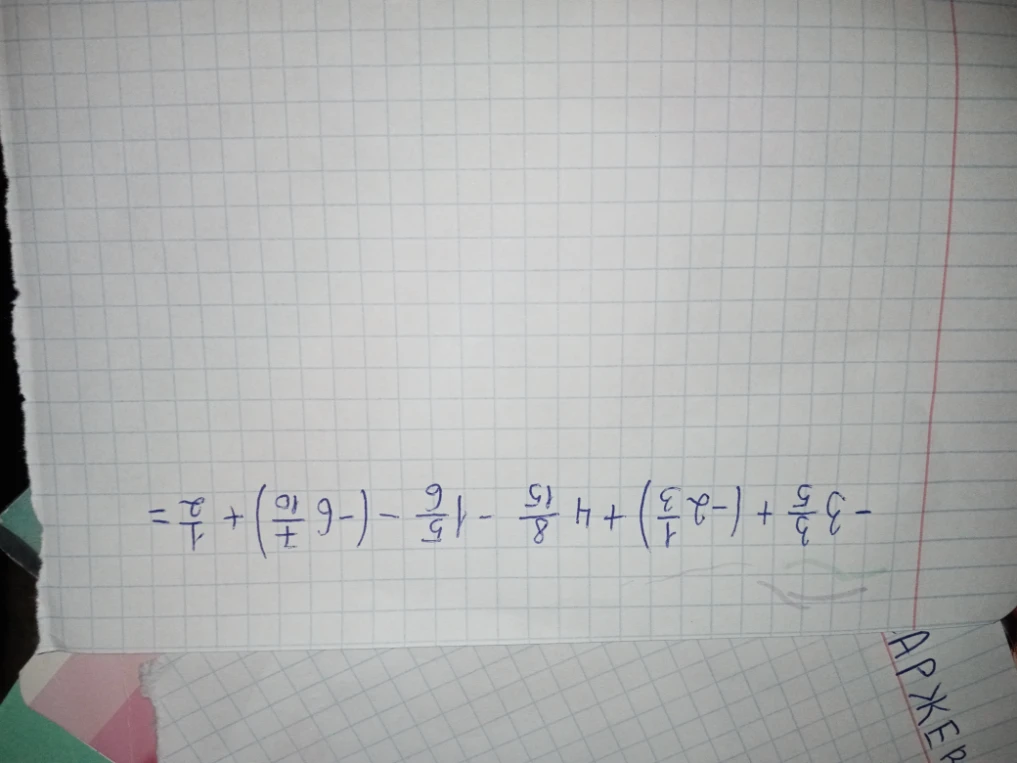 -3 3/5 + (-2 1/3) + 4 8/15 - 1 5/6 - (-6 7/10) + 1/2 =
АРЖЕР